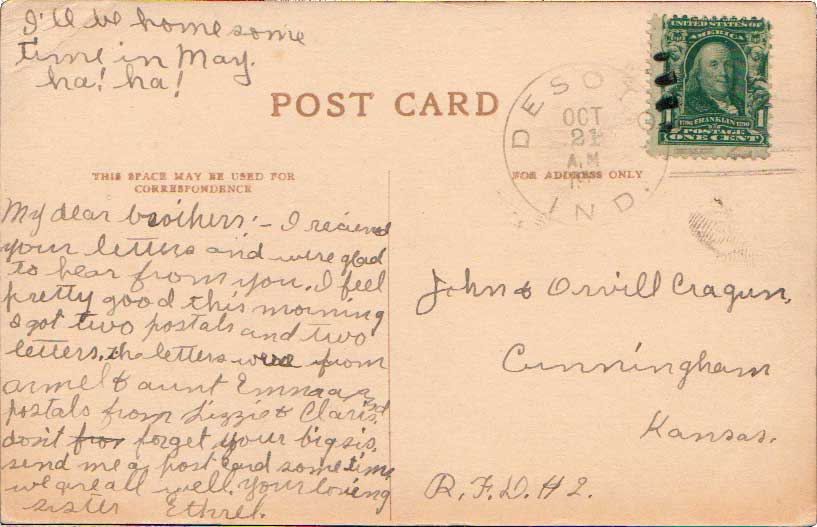 I'll be home some
time in May.
ha! ha!
POST CARD
DESO
OCT
21
A.M
IND.
UNITED STATES OF
AMERICA
1 1
FRANKLIN
POSTAGE
ONE CENT
THIS SPACE MAY BE USED FOR
CORRESPONDENCE
FOR ADDRESS ONLY
My dear brothers:- I recieved
your letters and were glad
to hear from you. I feel
pretty good this morning
I got two postals and two
letters. the letters were from
armel & aunt Emma and
postals from Lizzie & Claris.
don't for forget your big sis.
send me a post card some time
we are all well. your loving
sister Ethrel.
John & Orvill Cragun,
Cunningham
Kansas.
R.F.D. # 2.